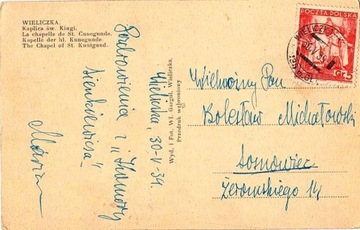 WIELICZKA.
Kaplica św. Kingi.
La chapelle de St. Cunegunde.
Kapelle der hl. Kunegunde.
The Chapel of St. Kunigund.
Pozdrowienia z „Komory
Sienkiewicza”
Wieliczka, 30-V-39.
Wyd. i Fot. Wł. Gargul, Wieliczka
Przedruk wzbroniony
POCZTA POLSKA
Wielmożny Pan
Bolesław Michałowski
Sosnowiec
Żeromskiego 14